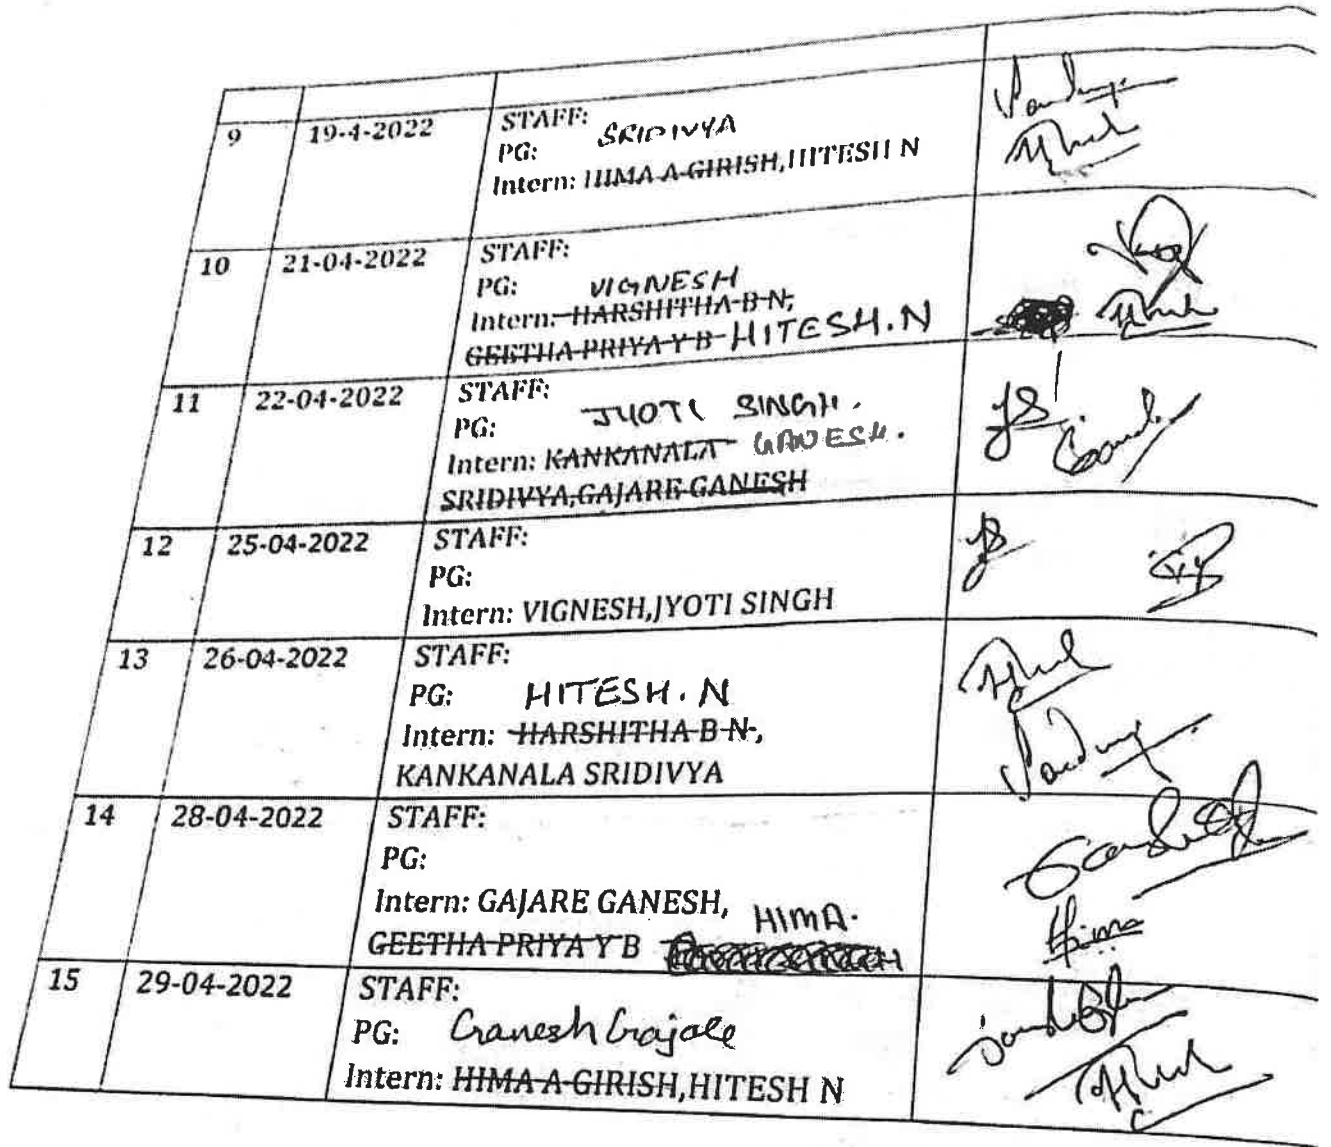 9 19-4-2022 STAFF:
PG: SRIDIVYA
Intern: HIMA A GIRISH,HITESH N
10 21-04-2022 STAFF:
PG: VIGNESH
Intern: HARSHITHA B N,
GEETHA PRIYA Y B HITESH.N
11 22-04-2022 STAFF:
PG: JYOTI SINGH.
Intern: KANKANALA GANESH.
SRIDIVYA,GAJARE GANESH
12 25-04-2022 STAFF:
PG:
Intern: VIGNESH,JYOTI SINGH
13 26-04-2022 STAFF:
PG: HITESH.N
Intern: HARSHITHA B N,
KANKANALA SRIDIVYA
14 28-04-2022 STAFF:
PG:
Intern: GAJARE GANESH, HIMA.
GEETHA PRIYA Y B
Hima
15 29-04-2022 STAFF:
PG: Ganesh Gajare
Intern: HIMA A GIRISH,HITESH N